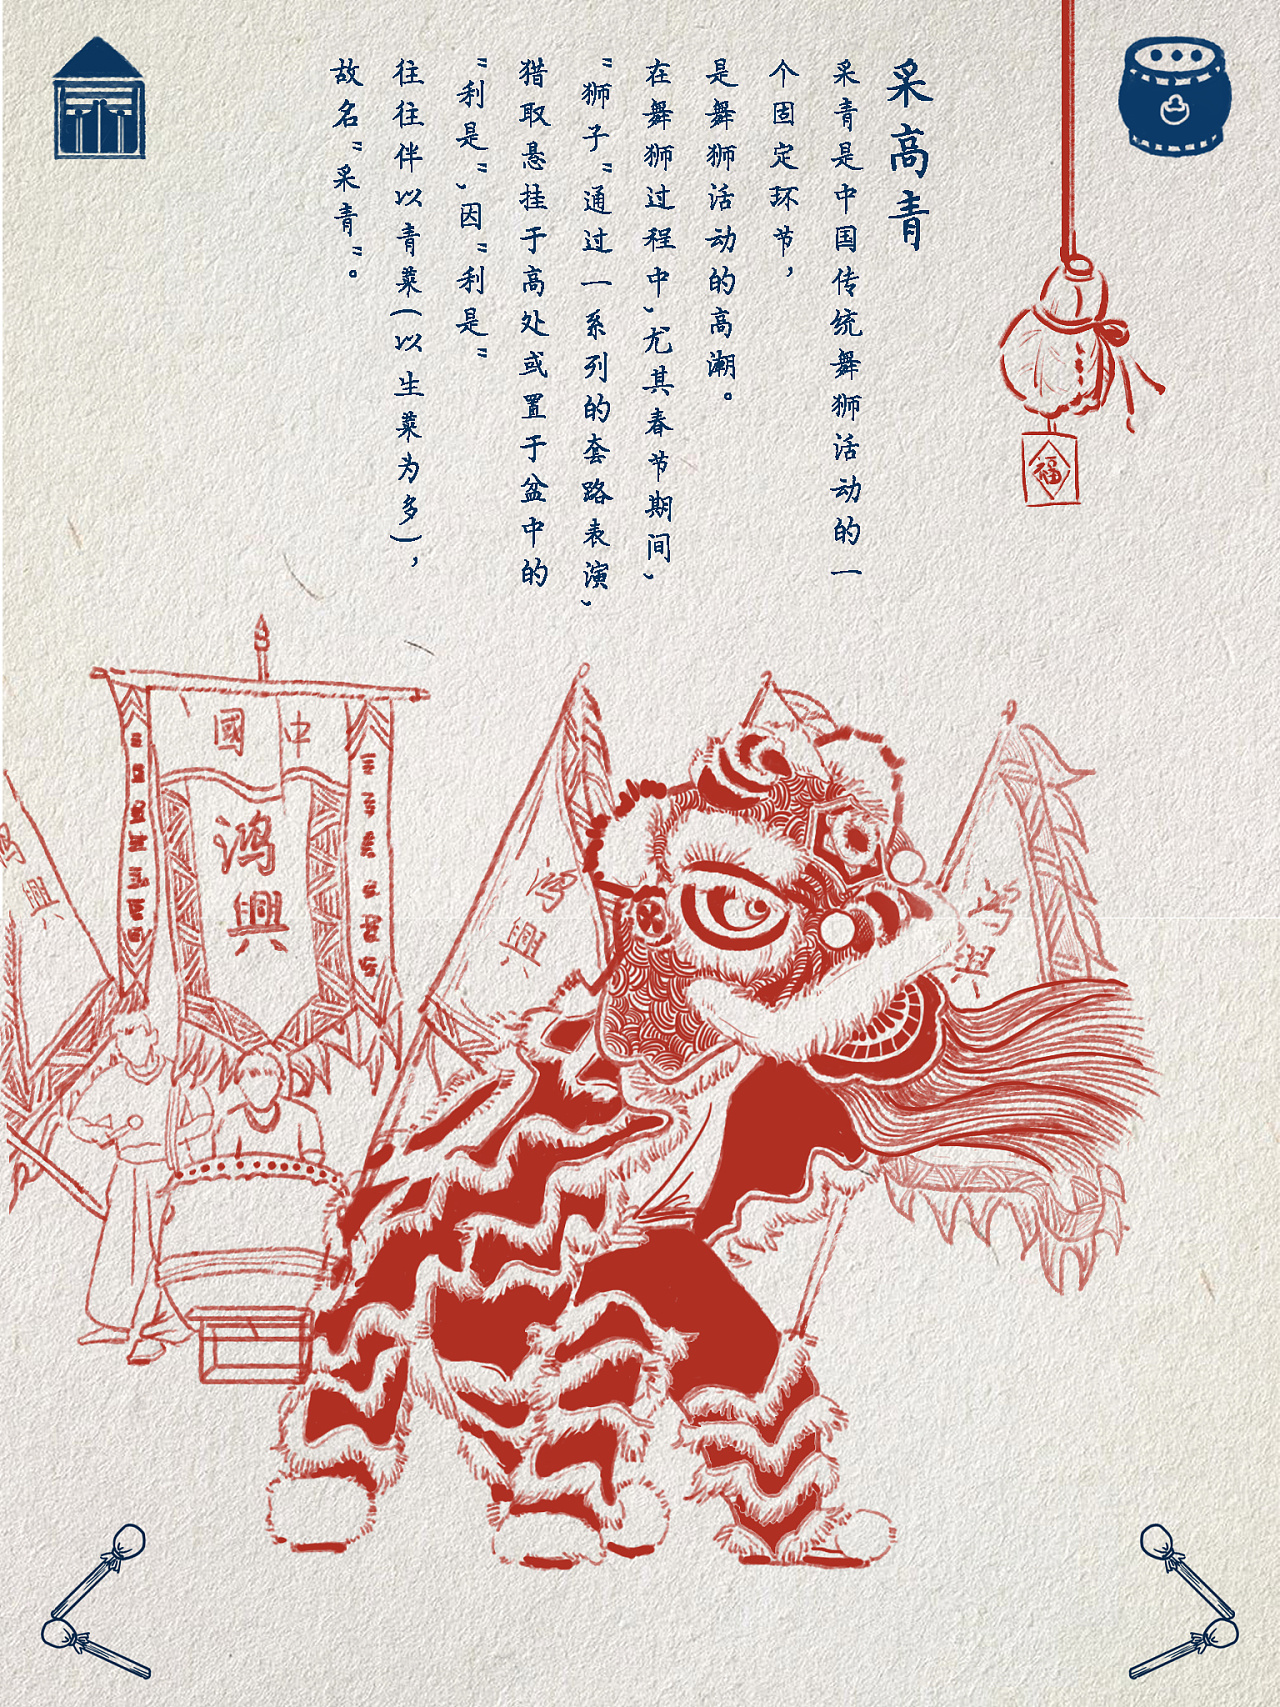 采高青
采青是中国传统舞狮活动的一
个固定环节，
是舞狮活动的高潮。
在舞狮过程中、尤其春节期间、
“狮子”通过一系列的套路表演、
猎取悬挂于高处或置于盆中的
“利是”、因“利是”
往往伴以青菜(以生菜为多)，
故名“采青”。
福
中國
鸿興
鸿興
鸿興
鸿興